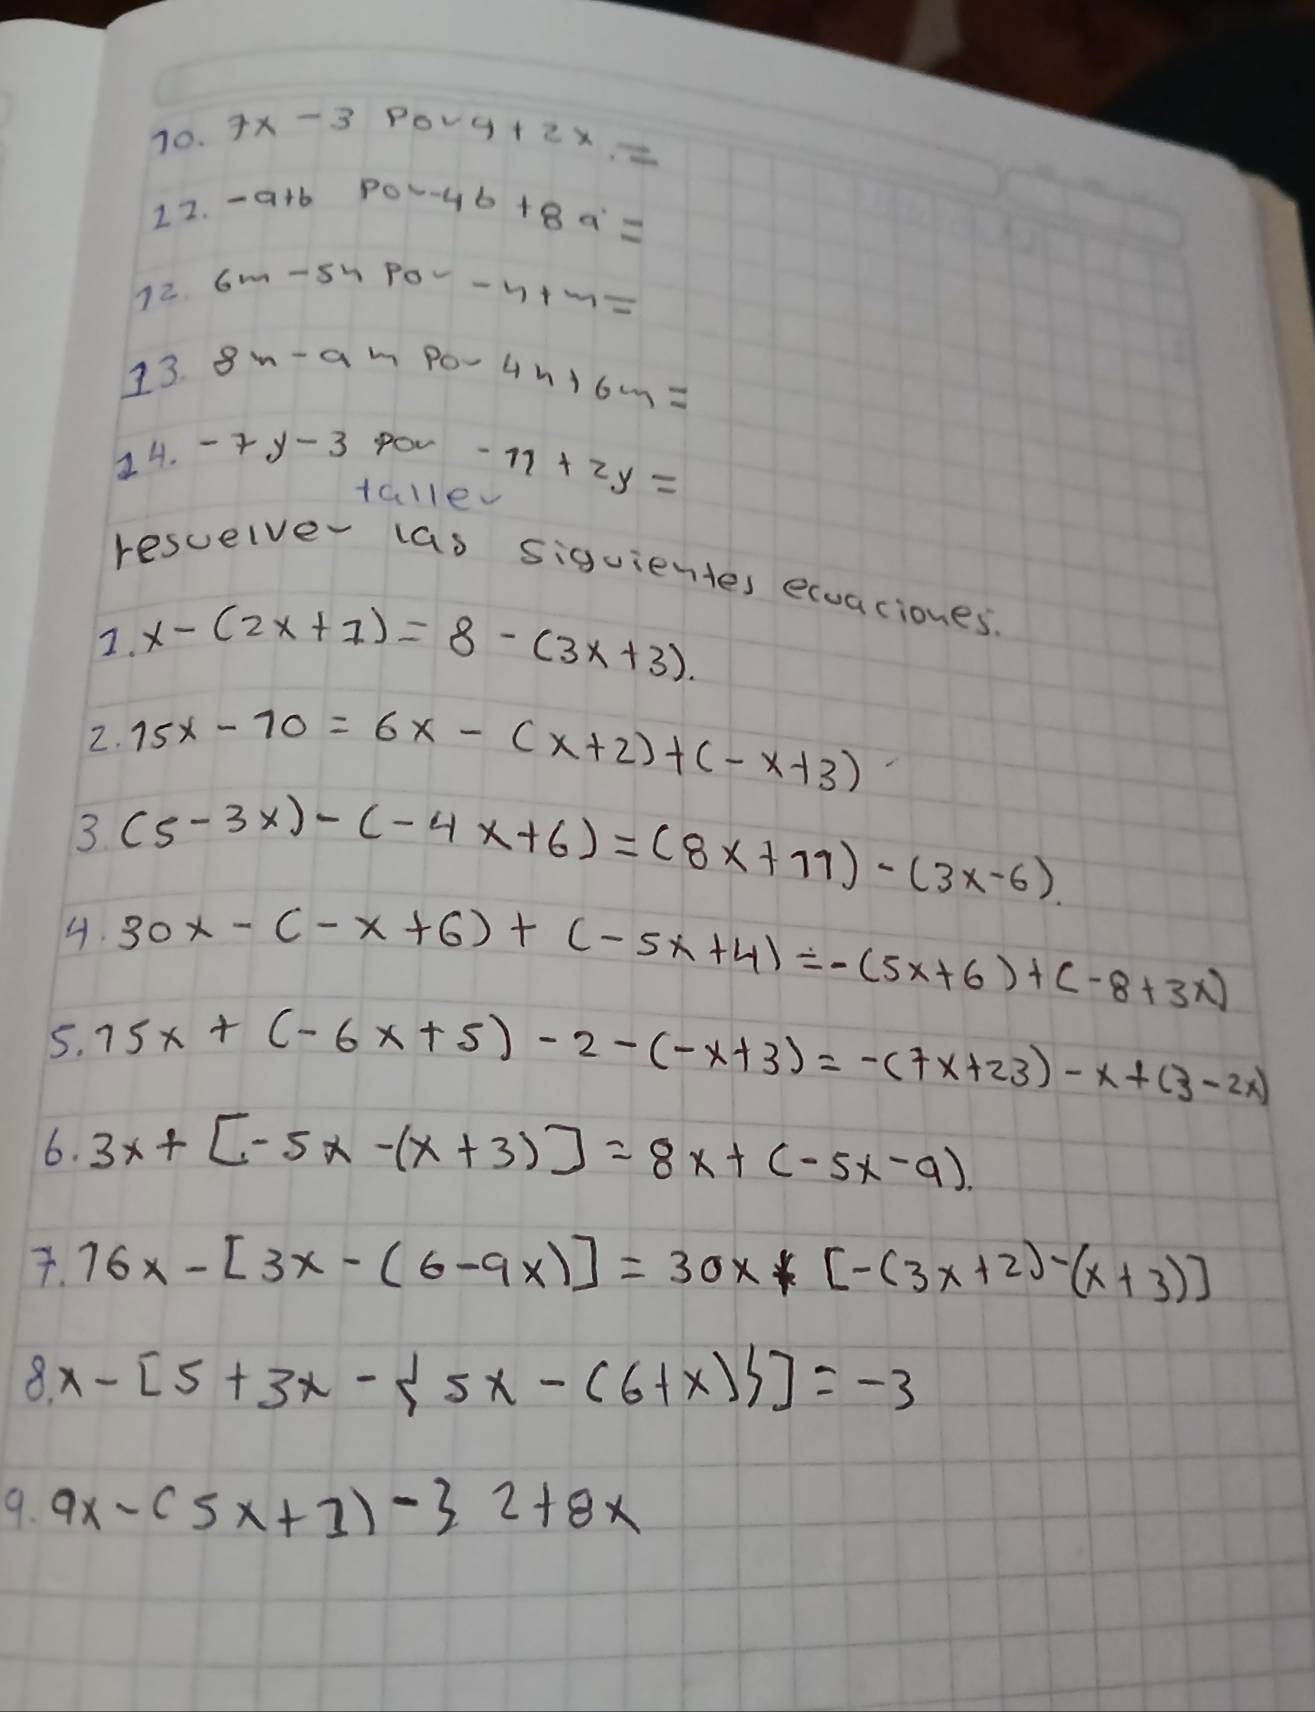 10. 7x - 3 por 4 + 2x. =
11. -a+b por -4b + 8a =
12. 6m - 5n por -n + m =
13. 8n - 9m por 4n + 6m =
14. -7y - 3 por -11 + 2y =
taller
resuelver las siguientes ecuaciones.
1. x - (2x + 1) = 8 - (3x + 3).
2. 15x - 10 = 6x - (x + 2) + (-x + 3)
3. (5 - 3x) - (-4x + 6) = (8x + 11) - (3x - 6).
4. 30x - (-x + 6) + (-5x + 4) = -(5x + 6) + (-8 + 3x)
5. 15x + (-6x + 5) - 2 - (-x + 3) = -(7x + 23) - x + (3 - 2x)
6. 3x + [-5x - (x + 3)] = 8x + (-5x - 9).
7. 16x - [3x - (6 - 9x)] = 30x + [-(3x + 2) - (x + 3)]
8. x - [5 + 3x - {5x - (6 + x)}] = -3
9. 9x - (5x + 1) - { 2 + 8x